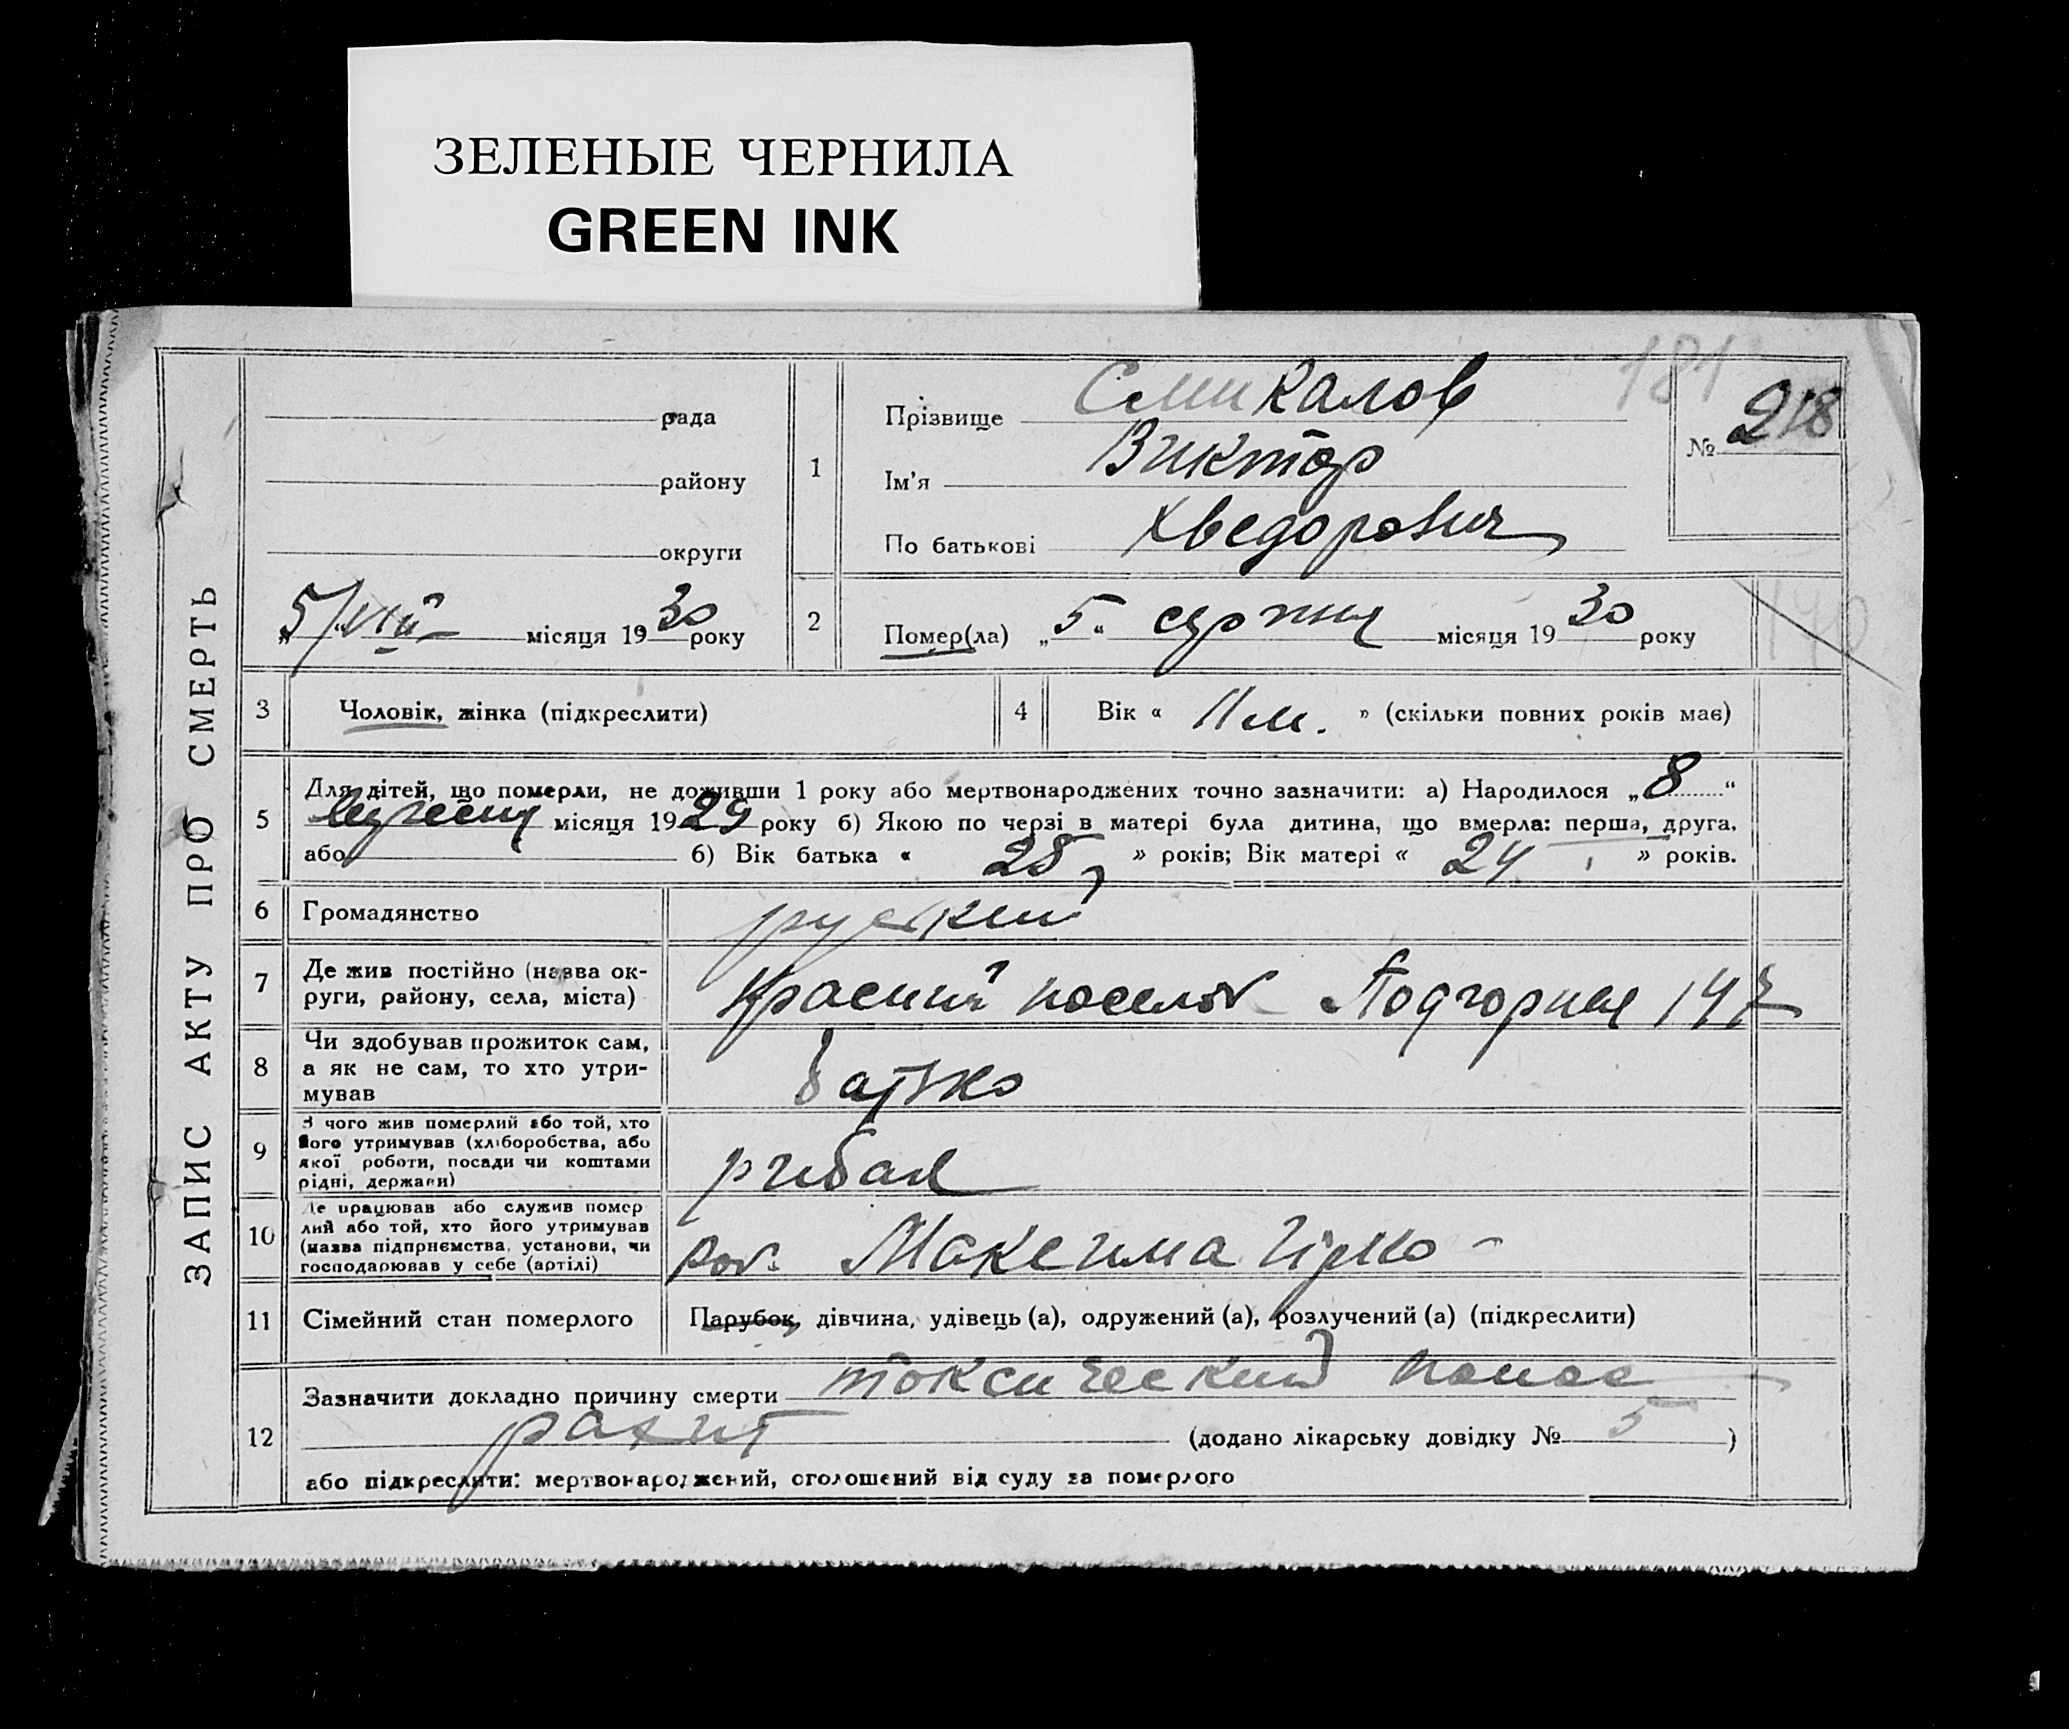 ЗЕЛЕНЫЕ ЧЕРНИЛА
GREEN INK
ЗАПИС АКТУ ПРО СМЕРТЬ
рада
району
округи
5/VIII місяця 1930 року
181
№ 218
1
Прізвище Смикалов
Ім'я Виктор
По батькові Хведорович
2
Помер(ла) „5“ серпня місяця 1930 року
140
3
Чоловік, жінка (підкреслити)
4
Вік « 11 м. » (скільки повних років має)
5
Для дітей, що померли, не доживши 1 року або мертвонароджених точно зазначити: а) Народилося „8“
місяця 1929 року б) Якою по черзі в матері була дитина, що вмерла: перша, друга,
або б) Вік батька « 28 » років; Вік матері « 24 » років.
6
Громадянство руский
7
Де жив постійно (назва ок-
руги, району, села, міста)
Красний поселок Подгорная 147
8
Чи здобував прожиток сам,
а як не сам, то хто утри-
мував
батько
9
З чого жив померлий або той, хто
його утримував (хліборобства, або
якої роботи, посади чи коштами
рідні, держави)
рибак
10
Де працював або служив помер
лий або той, хто його утримував
(назва підприємства, установи, чи
господарював у себе (артілі)
Максима
11
Сімейний стан померлого
Парубок, дівчина, удівець (а), одружений (а), розлучений (а) (підкреслити)
12
Зазначити докладно причину смерти токсический понос
рахит (додано лікарську довідку № 5)
або підкреслити: мертвонароджений, оголошений від суду за померлого